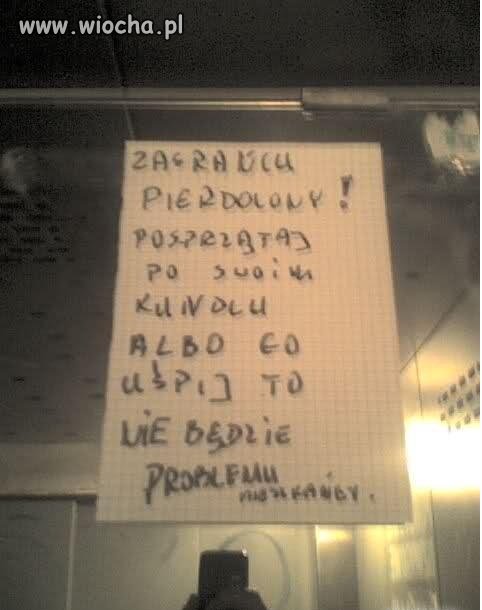 www.wiocha.pl
ZASRAŃCU
PIERDOLONY!
POSPRZĄTAJ
PO SWOIM
KUNDLU
ALBO GO
UŚPIJ TO
NIE BĘDZIE
PROBLEMU
MIESZKAŃCY.